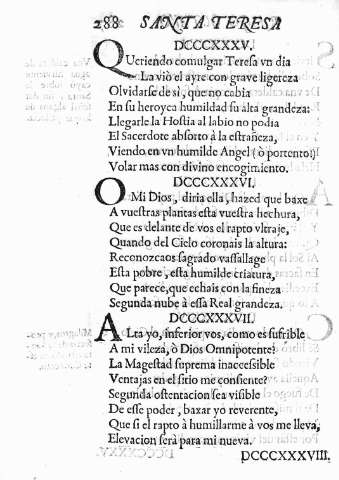 288 SANTA TERESA
DCCCXXXV.
QUeriendo comulgar Teresa vn dia
La viò el ayre con grave ligereza
Olvidarse de si, que no cabia
En su heroyca humildad su alta grandeza:
Llegarle la Hostia al labio no podia
El Sacerdote absorto à la estrañeza,
Viendo en vn humilde Angel (ò portento!)
Volar mas con divino encogimiento.
DCCCXXXVI.
O Mi Dios, diria ella, hazed que baxe
A vuestras plantas esta vuestra hechura,
Que es delante de vos el rapto vltraje,
Quando del Cielo coronais la altura:
Reconozcaos sagrado vassallage
Esta pobre, esta humilde criatura,
Que parece, que echais con la fineza
Segunda nube à essa Real grandeza.
DCCCXXXVII.
ALta yo, inferior vos, como es sufrible
A mi vileza, ò Dios Omnipotente?
La Magestad suprema inaccessible
Ventajas en el sitio me consiente?
Segunda ostentacion sea visible
De esse poder, baxar yo reverente,
Que si el rapto à humillarme à vos me lleva,
Elevacion serà para mi nueva.
DCCCXXXVIII.